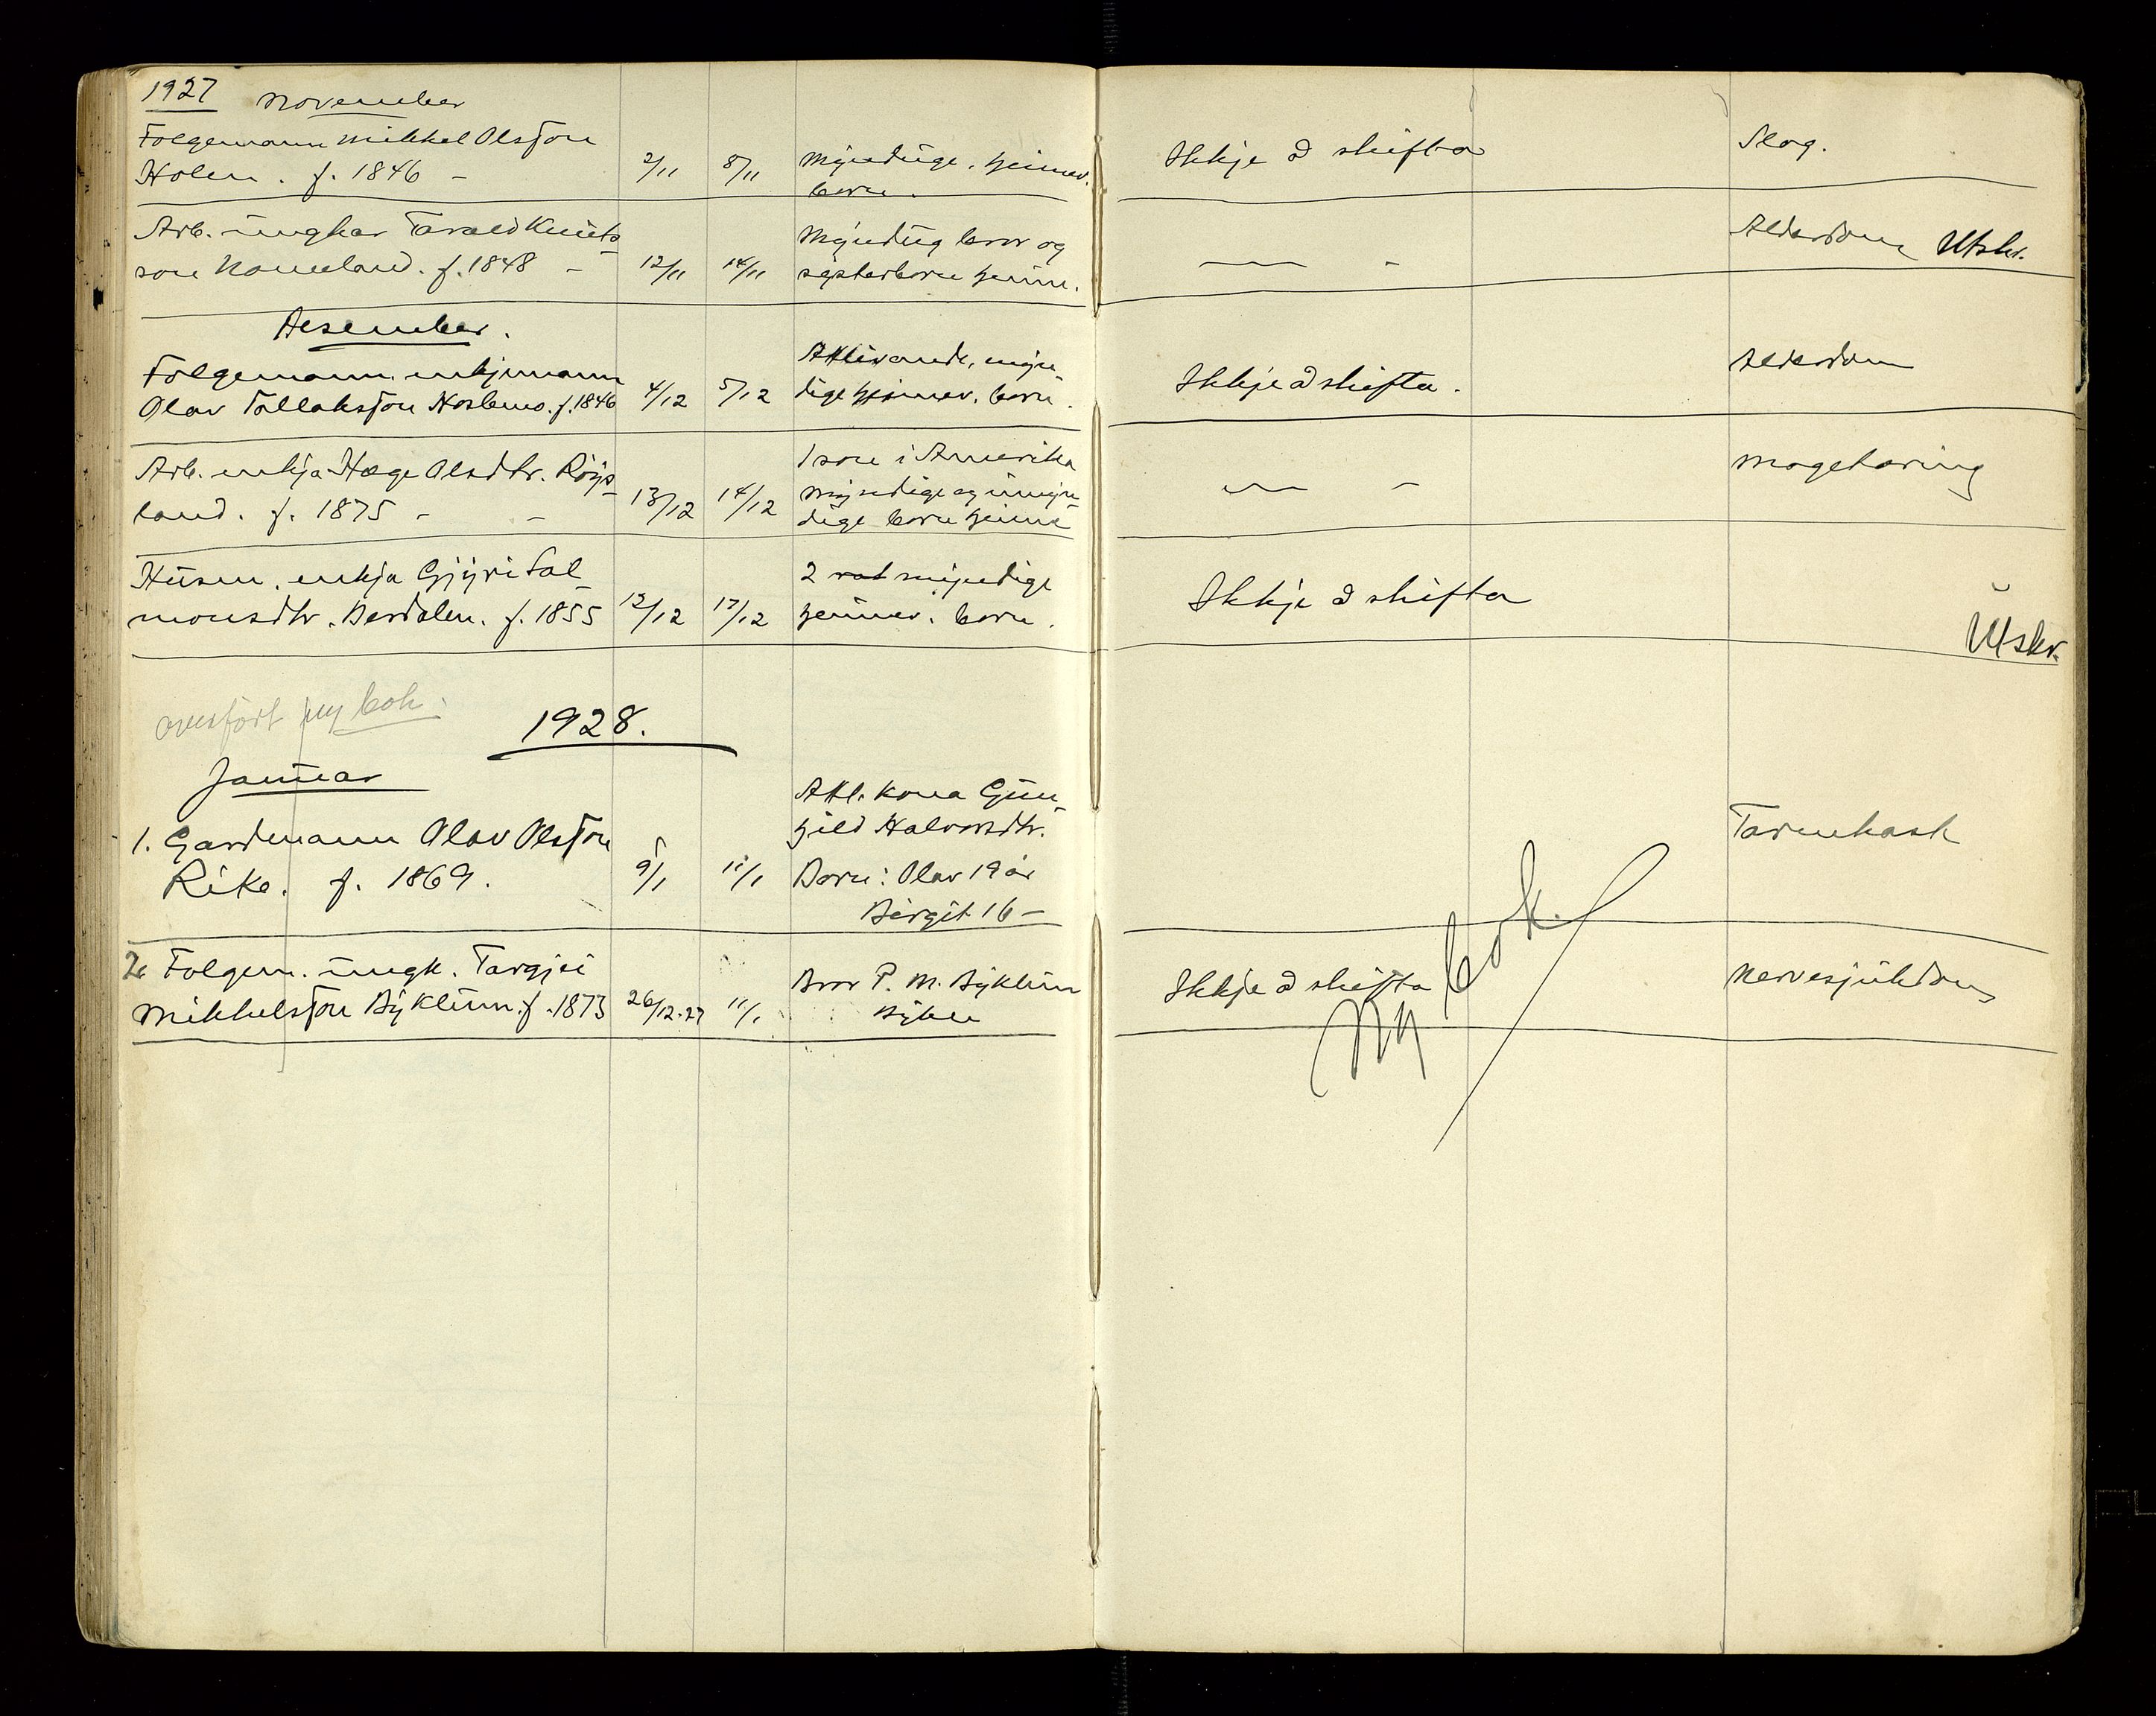 1927 November
Folgemann Mikkel Olsson
Holen. f. 1846 – 2/11 8/11 Myndige. heimev.
born.
Ikkje å skifta
Slag.
Arb. ungkar Tarald Knuts-
son Nomeland. f. 1848 – 12/11 14/11
Myndug bror og
systerborn heime.
— -
Alderdom Utskr.
Desember.
Folgemann enkjemann
Olav Tallaksson Nosbmo. f. 1846 4/12 5/12
Attlivande, myn-
dige heimev. born.
Ikkje å skifta.
Alderdom
Arb. enkja Hæge Olsdtr. Röys-
land. f. 1875 - – 13/12 14/12
1 son i Amerika
myndige og umyn-
dige born heime
— -
Magekaring
Husm. enkja Gjyri Sal-
monsdtr. Berdalen. f. 1855 12/12 17/12
2 myndige
heimev. born.
Ikkje å skifta
Utskr.
overfört ny bok.
1928.
Januar
1. Gardmann Olav Olsson
Rike. f. 1869. 9/1 11/1
Attl. kona Gun-
hild Halvorsdtr.
Born: Olav 19 år
Birgit 16 –
Tarmkask
2. Folgem. ungk. Targjei
Mikkelsson Byklum. f. 1873 26/12.27 11/1
Bror P. M. Byklum
Bykle
Ikkje å skifta
Ny bok.
Nervesjukdom